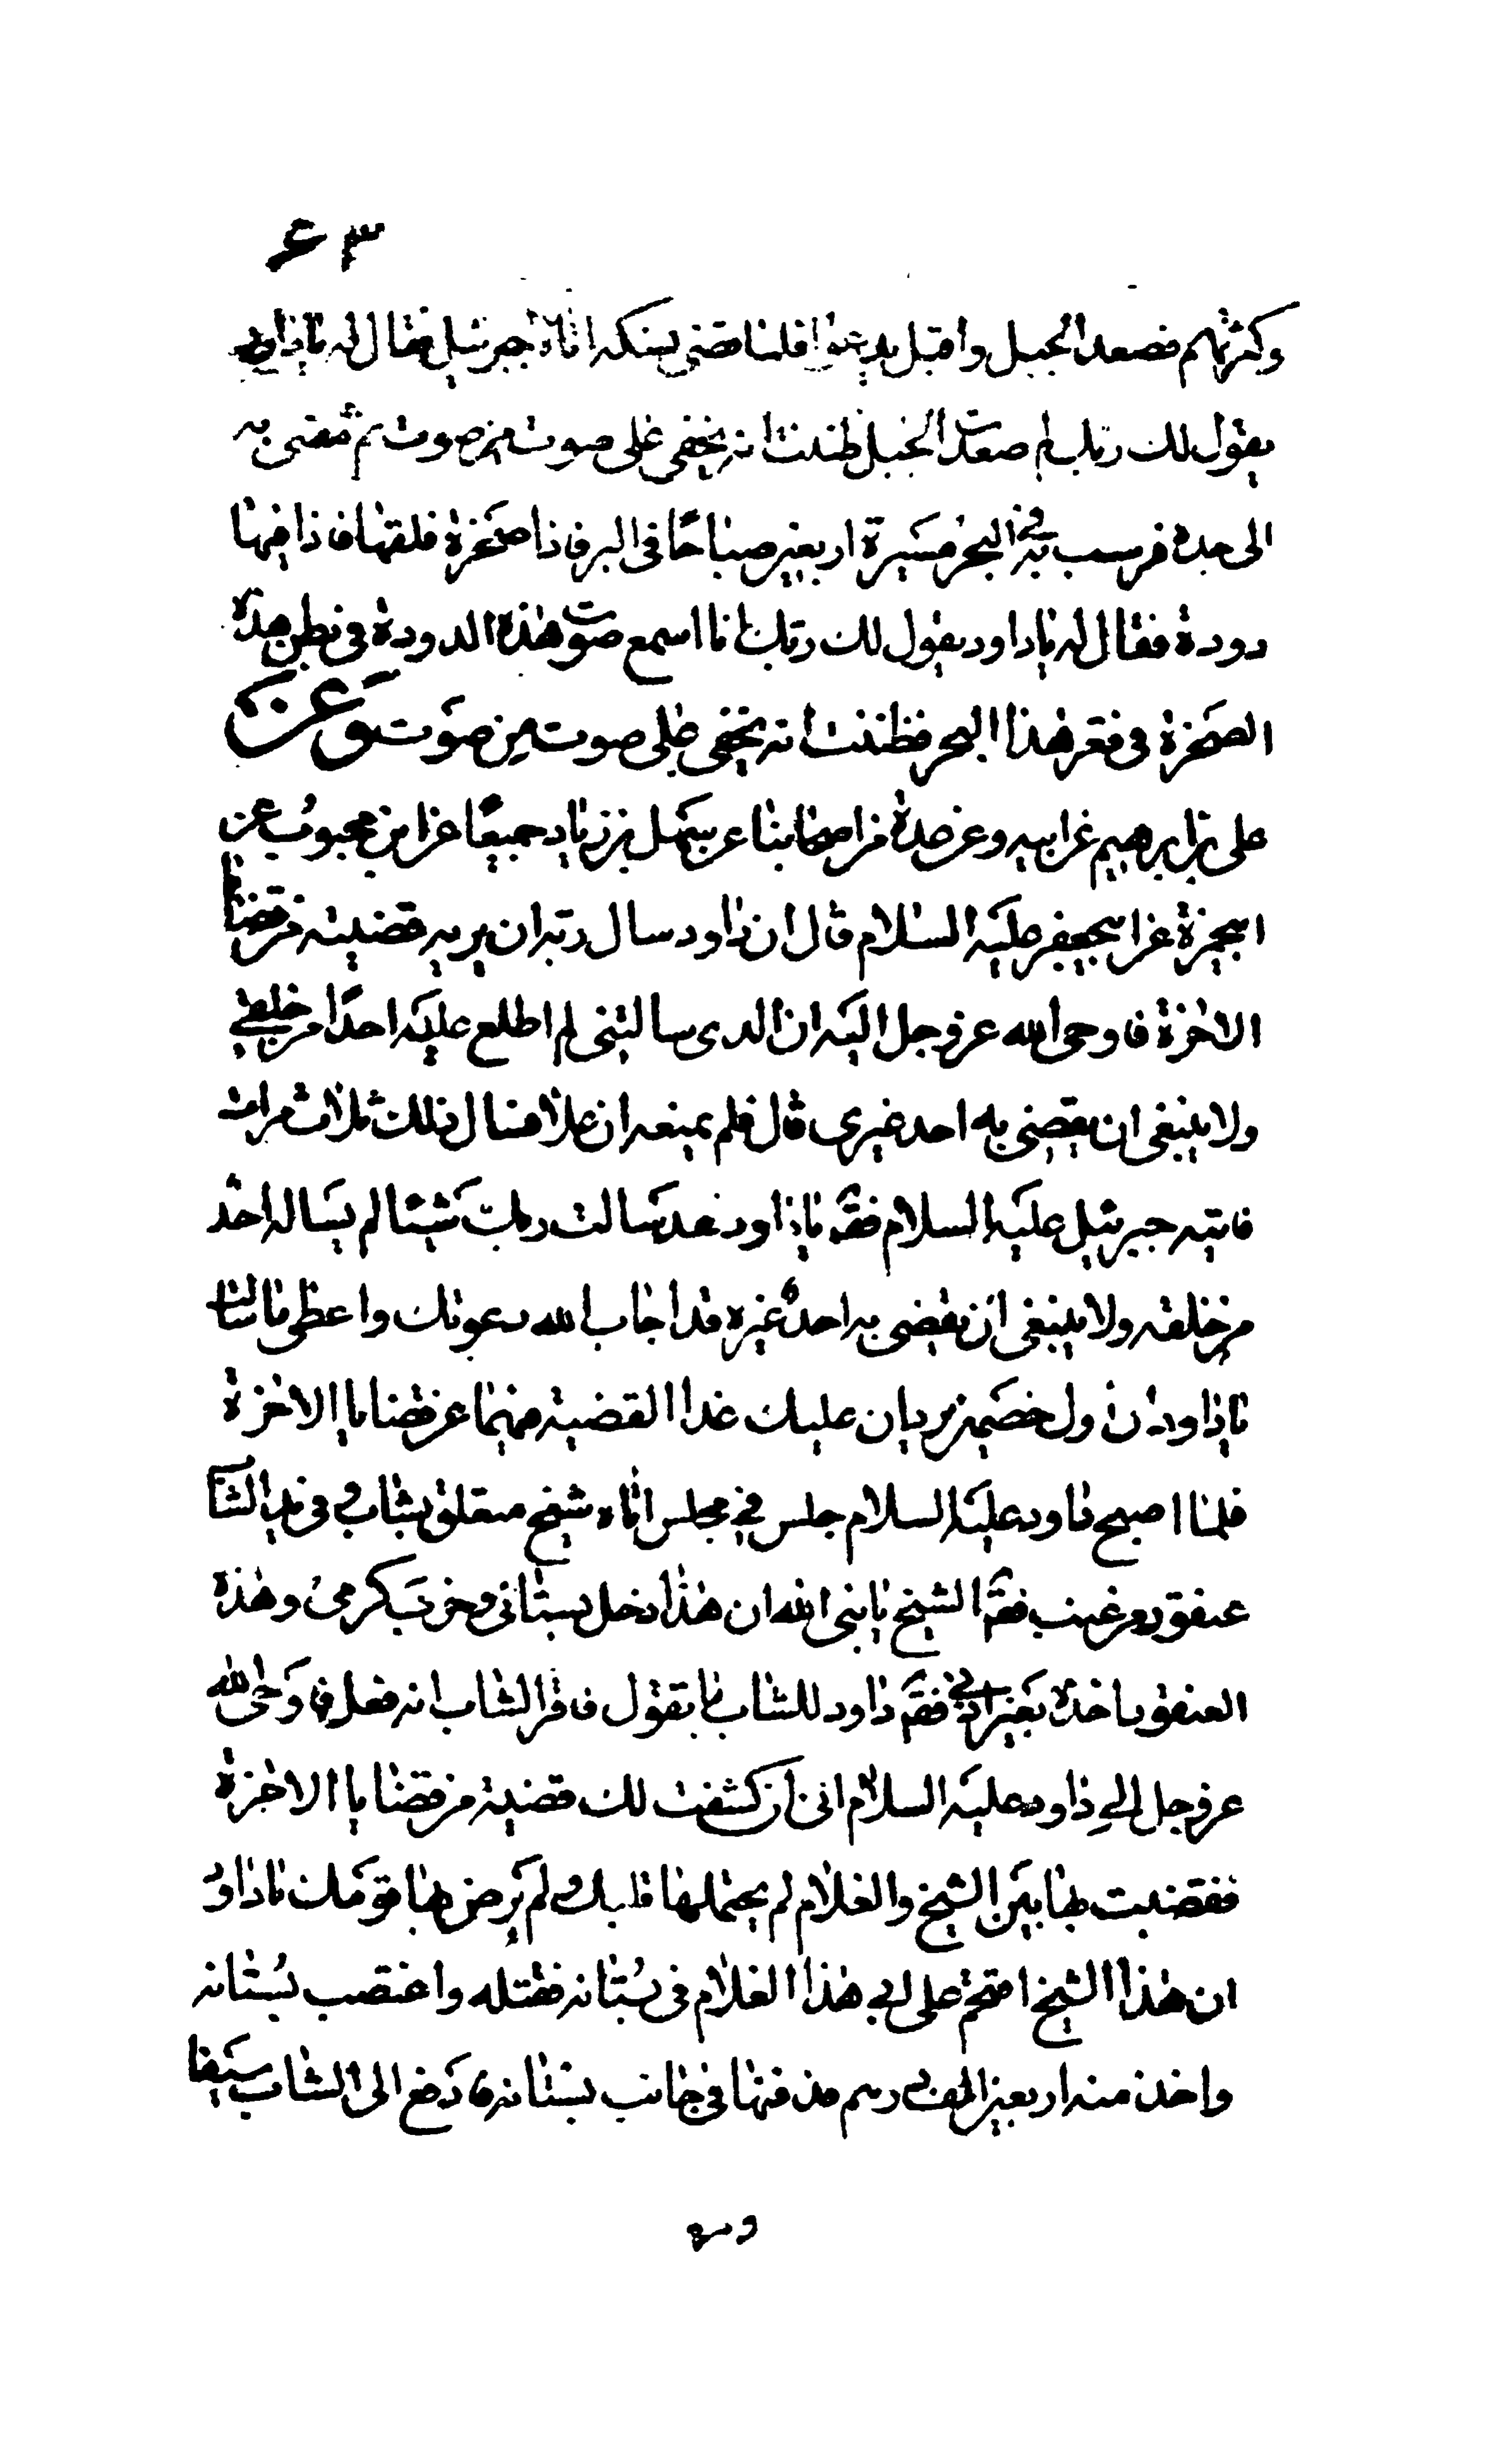 ۶۳
وكثرتهم فصعد الجبل واقبل يدعو فلما قضى نسكه اتاه جبرئيل فقال له يا داود
يقول لك ربك لم صعدت الجبل ظننت انه يخفى على صوت من صوت ثم مضى به
الى جدة فرسب به في البحر مسيرة اربعين صباحا في البر فاذا صخرة فلقها فاذا فيها
دودة فقال له يا داود يقول لك ربك انا اسمع صوت هذه الدودة في بطن هذه
الصخرة في قعر هذا البحر فظننت انه يخفى على صوت من صوت وعن
على بن ابرهيم عن ابيه وعن عدة من اصحابنا عن سهل بن زياد جميعًا عن ابن محبوب عن
ابيحمزة عن ابيجعفر عليه السلام قال ان داود سال ربه ان يريه قضية من قضايا
الاخرة فاوحى الله عز وجل اليه ان الذى سالتنى لم اطلع عليه احدًا من خلقي
ولا ينبغى ان يقضى به احد غيرى قال فلم يمنعه ان عاد فسال ذلك ثلاث مرات
فاتيه جبرئيل عليه السلام فقّ يا داود لقد سالت ربك شيئا لم يساله احد
من خلقه ولا ينبغى ان يقضى به احد غيره قد اجاب الله دعوتك واعطى ما سالت
يا داود ان اول خصمين يردان عليك غدا القضية فيهما عن قضايا الاخرة
فلما اصبح داود عليه السلام جلس في مجلس اتاه شيخ متعلق بشاب و فى يد الشاب
عنقود عنب فقّ الشيخ يا نبى الله ان هذا دخل بستانى وخرب كرمى وهذه
العنقود اخذه بغير اذني فقّ داود للشاب ما تقول فاقر الشاب انه فعل فاوحى الله
عز وجل الى داود عليه السلام انى ان كشفت لك قضية من قضايا الاخرة
فقضيت بها بين الشيخ والغلام لم يحتملها قلبك ولم يرض بها قومك يا داود
ان هذا الشيخ اقتحم على ابي هذا الغلام فى بستانه فقتله واغتصب بستانه
واخذ منه اربعين الف درهم فدفنها في جانب بستانه فادفع الى الشاب سيفا
و مره